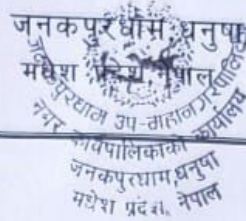 जनकपुरधाम, धनुषा
मधेश प्रदेश, नेपाल
जनकपुरधाम उप-महानगरपालिका
नगर कार्यपालिकाको कार्यालय
जनकपुरधाम, धनुषा
मधेश प्रदेश, नेपाल